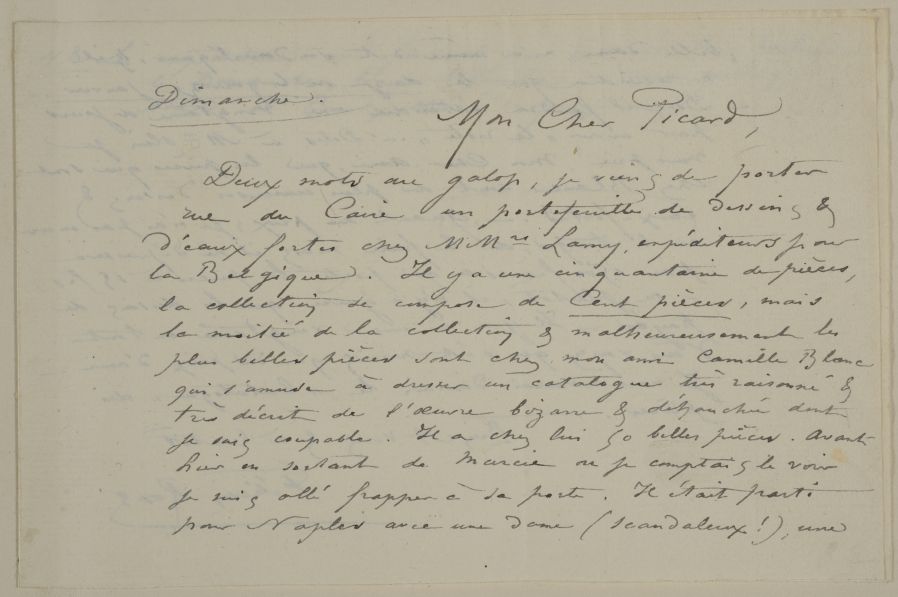 Dimanche.
Mon Cher Picard,
Deux mots au galop, je viens de porter
rue du Caire un portefeuille de dessins &
d'eaux fortes chez MMrs Lamy, expéditeurs pour
la Belgique. Il y a une cinquantaine de pièces,
la collection se compose de Cent pièces, mais
la moitié de la collection & malheureusement les
plus belles pièces sont chez mon ami Camille Blanc
qui s'amuse à dresser un catalogue très raisonné &
très décrit de l'œuvre bizarre & débauché dont
je suis coupable. Il a chez lui 50 belles pièces. Avant
hier en sortant de où je comptais le voir
je suis allé frapper à sa porte. Il était parti
pour Naples avec une dame (scandaleux!), une